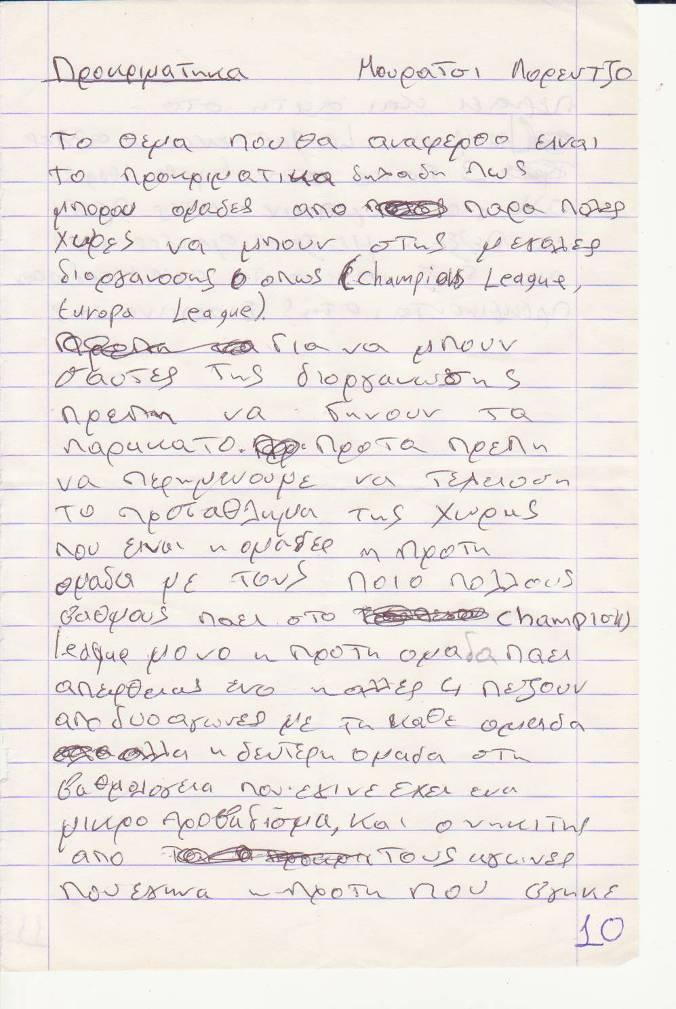 Προκριματηκα Μουρατσι Λορεντζο
Το θεμα που θα αναφερθο ειναι
το προκριματικα δηλαδη πως
μπορου ομαδες απο παρα πολες
χωρες να μπουν στης μεγαλες
διοργανοσης οπως (Champions League,
Europa League).
Για να μπουν
σαυτες της διοργανωσης
πρεπη να γηνουν τα
παρακατο. προτα πρεπη
να περημενουμε να τελειοση
το προταθλημα της χωρης
που ειναι η ομαδες η προτη
ομαδα με τους ποιο πολλους
βαθμους παει στο Champions
League μονο η προτη ομαδα παει
απερθειας ενο η αλλες 4 πεζουν
απο δυο αγωνες με τη καθε ομαδα
αλλα η δευτερη ομαδα στη
βαθμολογεια που εγινε εχει ενα
μικρο προβαδισμα, και ο νηκιτης
απο τους αγωνες
που εγηνα η προτη που βγηκε
10